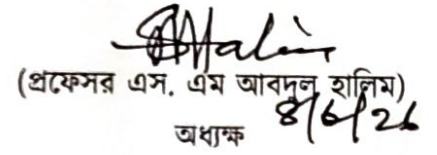 (প্রফেসর এস. এম আবদুল হালিম)
8/6/26
অধ্যক্ষ